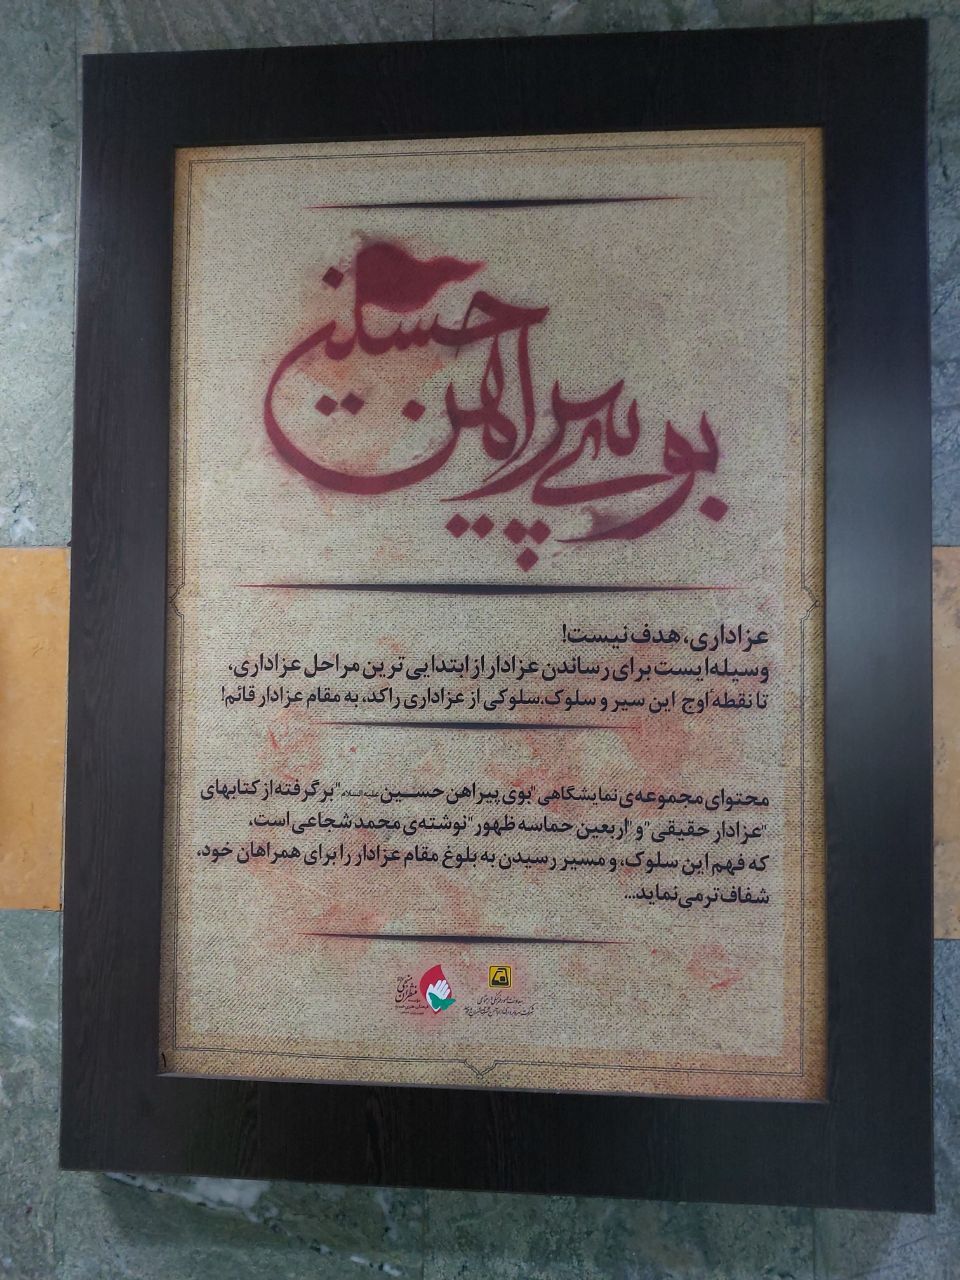 بوی پیراهن حسین
عزاداری، هدف نیست!
وسیله‌ایست برای رساندن عزادار از ابتدایی ترین مراحل عزاداری،
تا نقطهٔ اوج این سیر و سلوک، سلوکی از عزاداری راکد، به مقام عزادار قائم!
محتوای مجموعه‌ی نمایشگاهی "بوی پیراهن حسین علیه السلام" برگرفته از کتابهای
"عزادار حقیقی" و "اربعین حماسه ظهور" نوشته‌ی محمد شجاعی است،
که فهم این سلوک، و مسیر رسیدن به بلوغ مقام عزادار را برای همراهان خود،
شفاف‌تر می‌نماید...